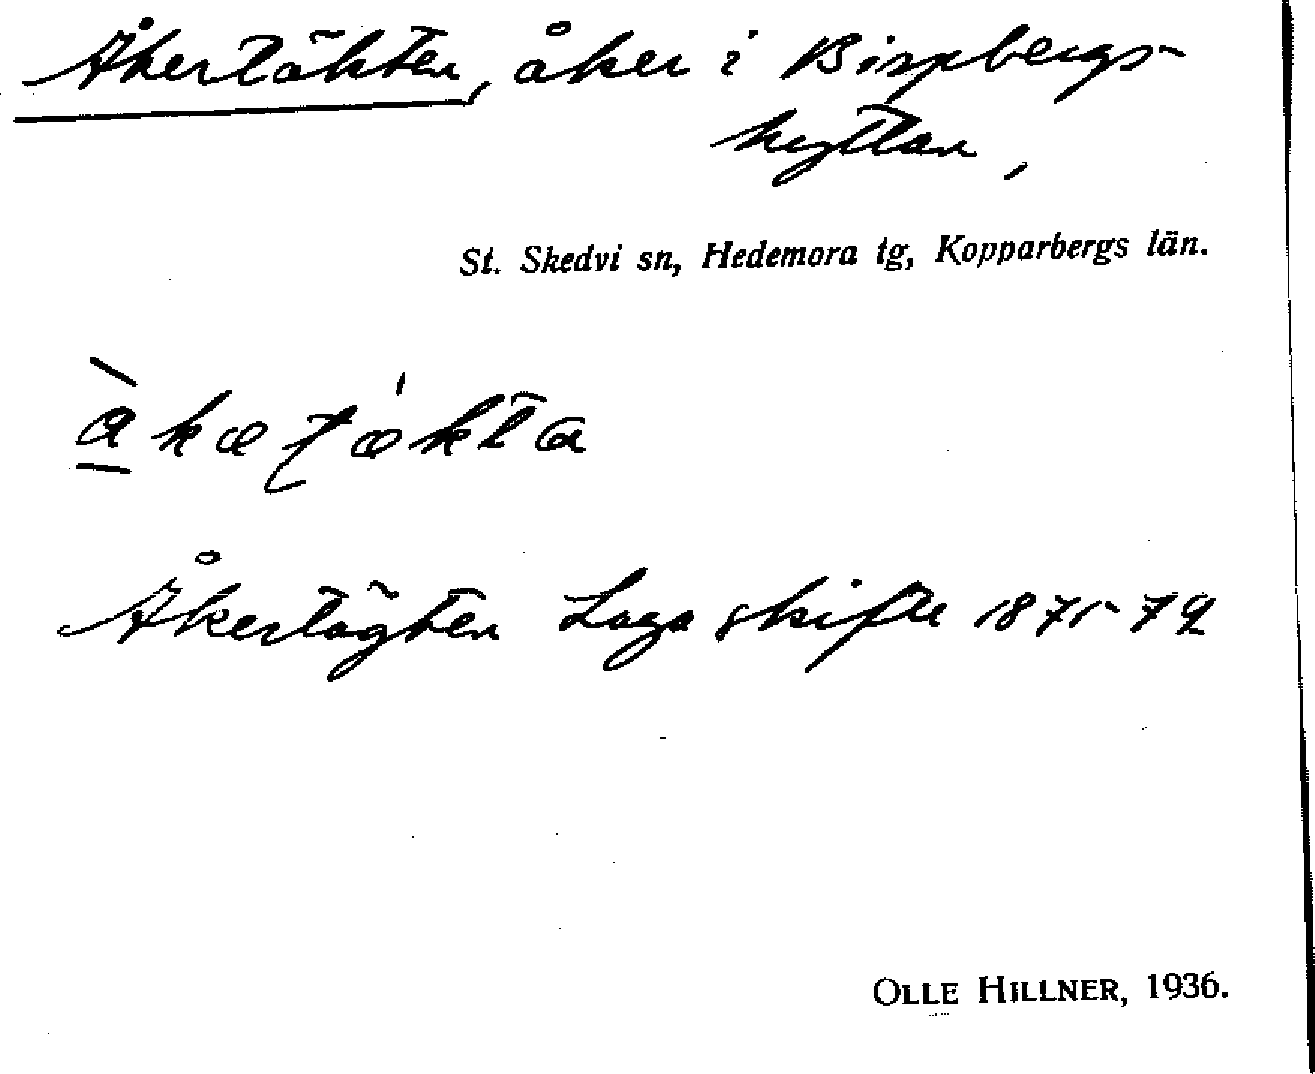 Åkertäkten, åker i Bispbergs-
hyttan,
St. Skedvi sn, Hedemora tg, Kopparbergs län.
Åkertägten Laga skifte 1871-72
OLLE HILLNER, 1936.